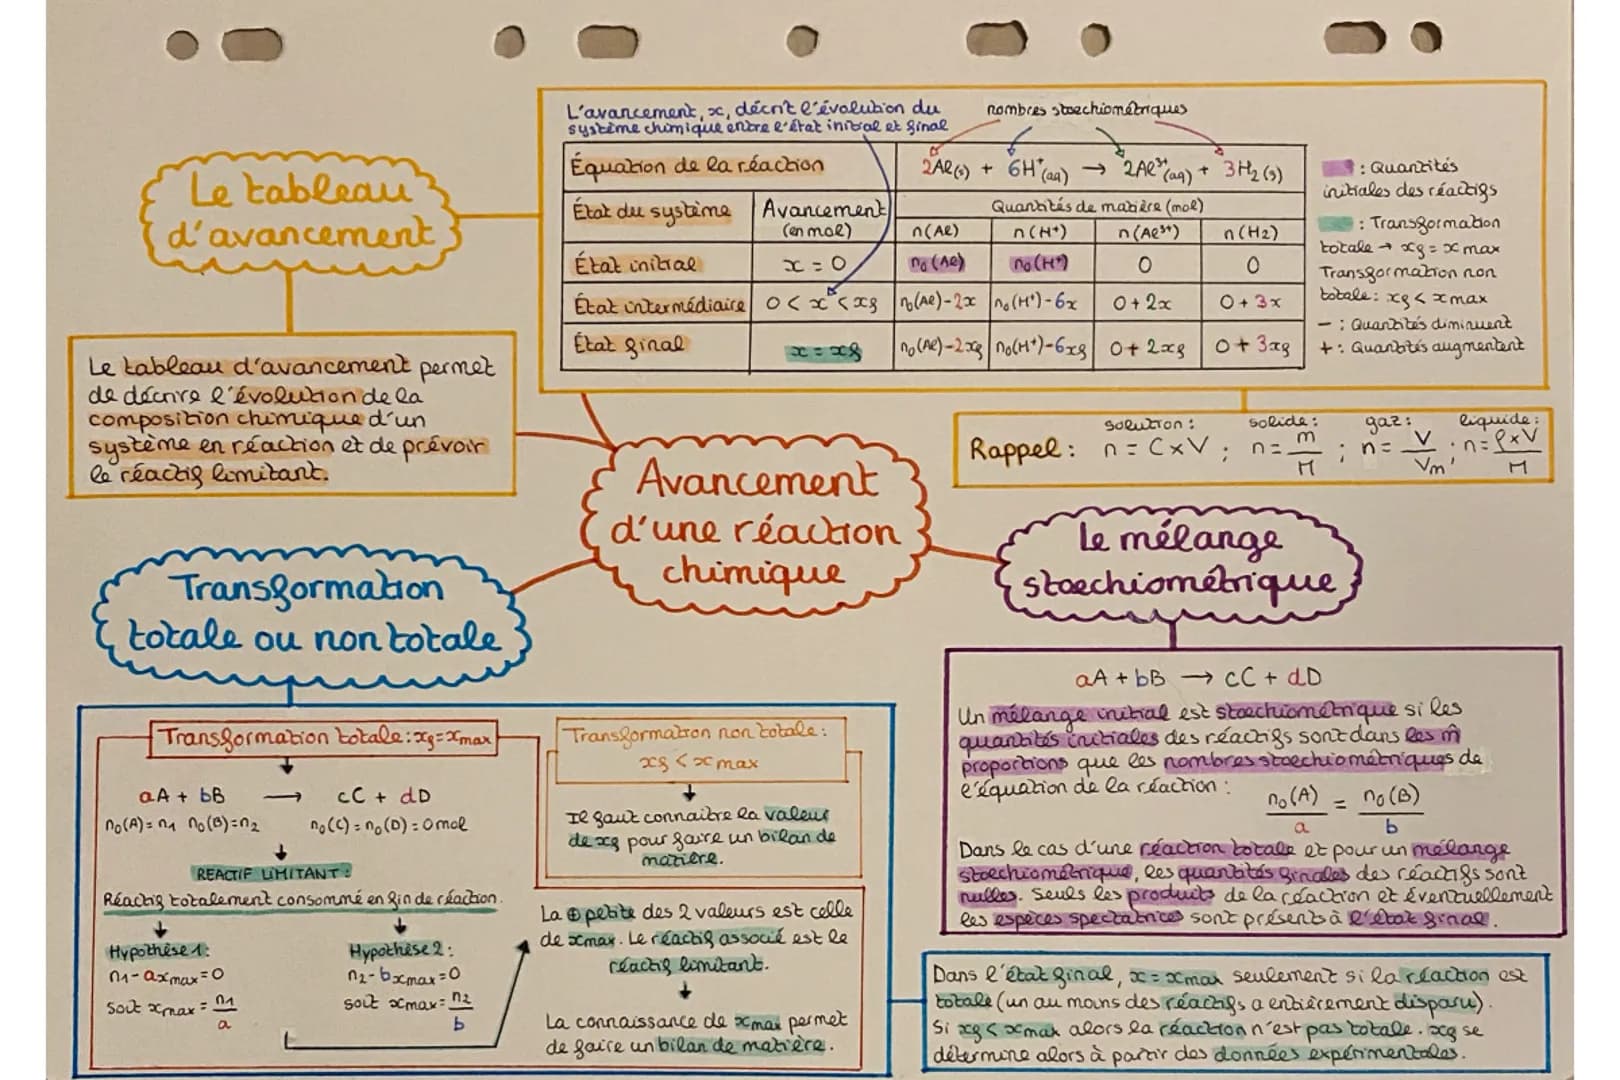 Le tableau
d'avancement
L'avancement, x, décrit l'évolution du
système chimique entre l'état initial et final
nombres stœchiométriques
Équation de la réaction
2Al(s) + 6H⁺(aq) → 2Al³⁺(aq) + 3H₂(g)
État du système
Avancement
(en mol)
Quantités de matière (mol)
n(Al) n(H⁺) n(Al³⁺) n(H2)
État initial x = 0 n₀(Al) n₀(H⁺) 0 0
État intermédiaire 0 < x < xf n₀(Al)-2x n₀(H⁺)-6x 0+2x 0+3x
État final x = xf n₀(Al)-2xf n₀(H⁺)-6xf 0+2xf 0+3xf
: Quantités
initiales des réactifs
: Transformation
totale → xf = x max
Transformation non
totale: xf < x max
- : Quantités diminuent
+ : Quantités augmentent
Le tableau d'avancement permet
de décrire l'évolution de la
composition chimique d'un
système en réaction et de prévoir
le réactif limitant.
Rappel : solution : n = C×V ; solide : n = m/M ; gaz : n = V/Vm ; liquide : n = ρ×V/M
Avancement
d'une réaction
chimique
Transformation
totale ou non totale
Transformation totale : xf = xmax
aA + bB → cC + dD
n₀(A) = n₁ n₀(B) = n₂ n₀(C) = n₀(D) = 0 mol
REACTIF LIMITANT :
Réactif totalement consommé en fin de réaction.
Hypothèse 1 :
n₁ - axmax = 0
soit xmax = n₁/a
Hypothèse 2 :
n₂ - bxmax = 0
soit xmax = n₂/b
Transformation non totale :
xf < x max
Il faut connaitre la valeur
de xf pour faire un bilan de
matière.
La ⊕ petite des 2 valeurs est celle
de xmax. Le réactif associé est le
réactif limitant.
La connaissance de xmax permet
de faire un bilan de matière.
Le mélange
stœchiométrique
aA + bB → cC + dD
Un mélange initial est stœchiométrique si les
quantités initiales des réactifs sont dans les m̂
proportions que les nombres stœchiométriques de
l'équation de la réaction :
n₀(A)/a = n₀(B)/b
Dans le cas d'une réaction totale et pour un mélange
stœchiométrique, les quantités finales des réactifs sont
nulles. Seuls les produits de la réaction et éventuellement
les espèces spectatrices sont présents à l'état final.
Dans l'état final, x = xmax seulement si la réaction est
totale (un au moins des réactifs a entièrement disparu).
Si xf < xmax alors la réaction n'est pas totale. xf se
détermine alors à partir des données expérimentales.